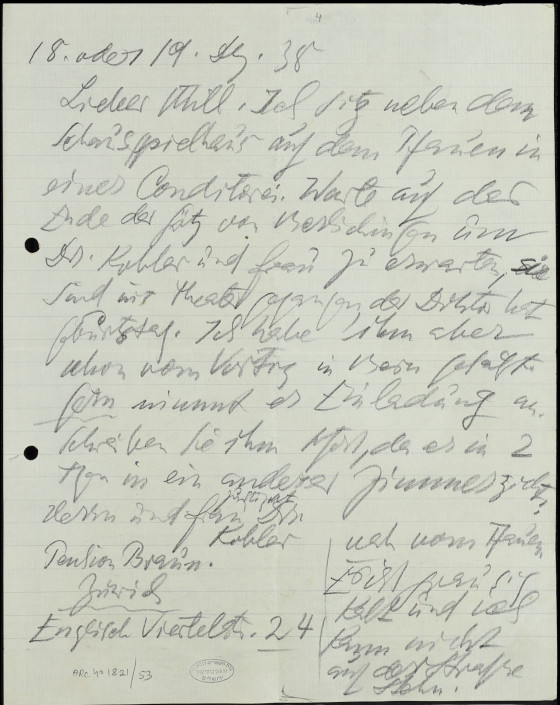 4
18. oder 19. Dez. 38
Lieber Mill. Ich sitz neben dem
Schauspielhaus auf dem Pfauen in
einer Conditorei. Warte auf das
Ende der Götz von Berlichingen um
Dr. Kohler und Frau zu erwarten, sie
sind ins Theater gegangen der Doktor hat
Geburtstag. Ich habe ihm aber
schon vom Vortrag in Bern gesagt.
Gern nimmt er Einladung an.
Schreiben Sie ihm sofort, da er in 2
Tagen in ein anderes Zimmer zieht,
Herrn und Frau Dr.
Kohler
Pension Braun.
Zürich
Englisch Viertelstr. 24
nah vom Pfauen
Es ist grausig
kalt und ich
kann nicht
auf der Straße
stehn.
ARC. 4° 1821/53